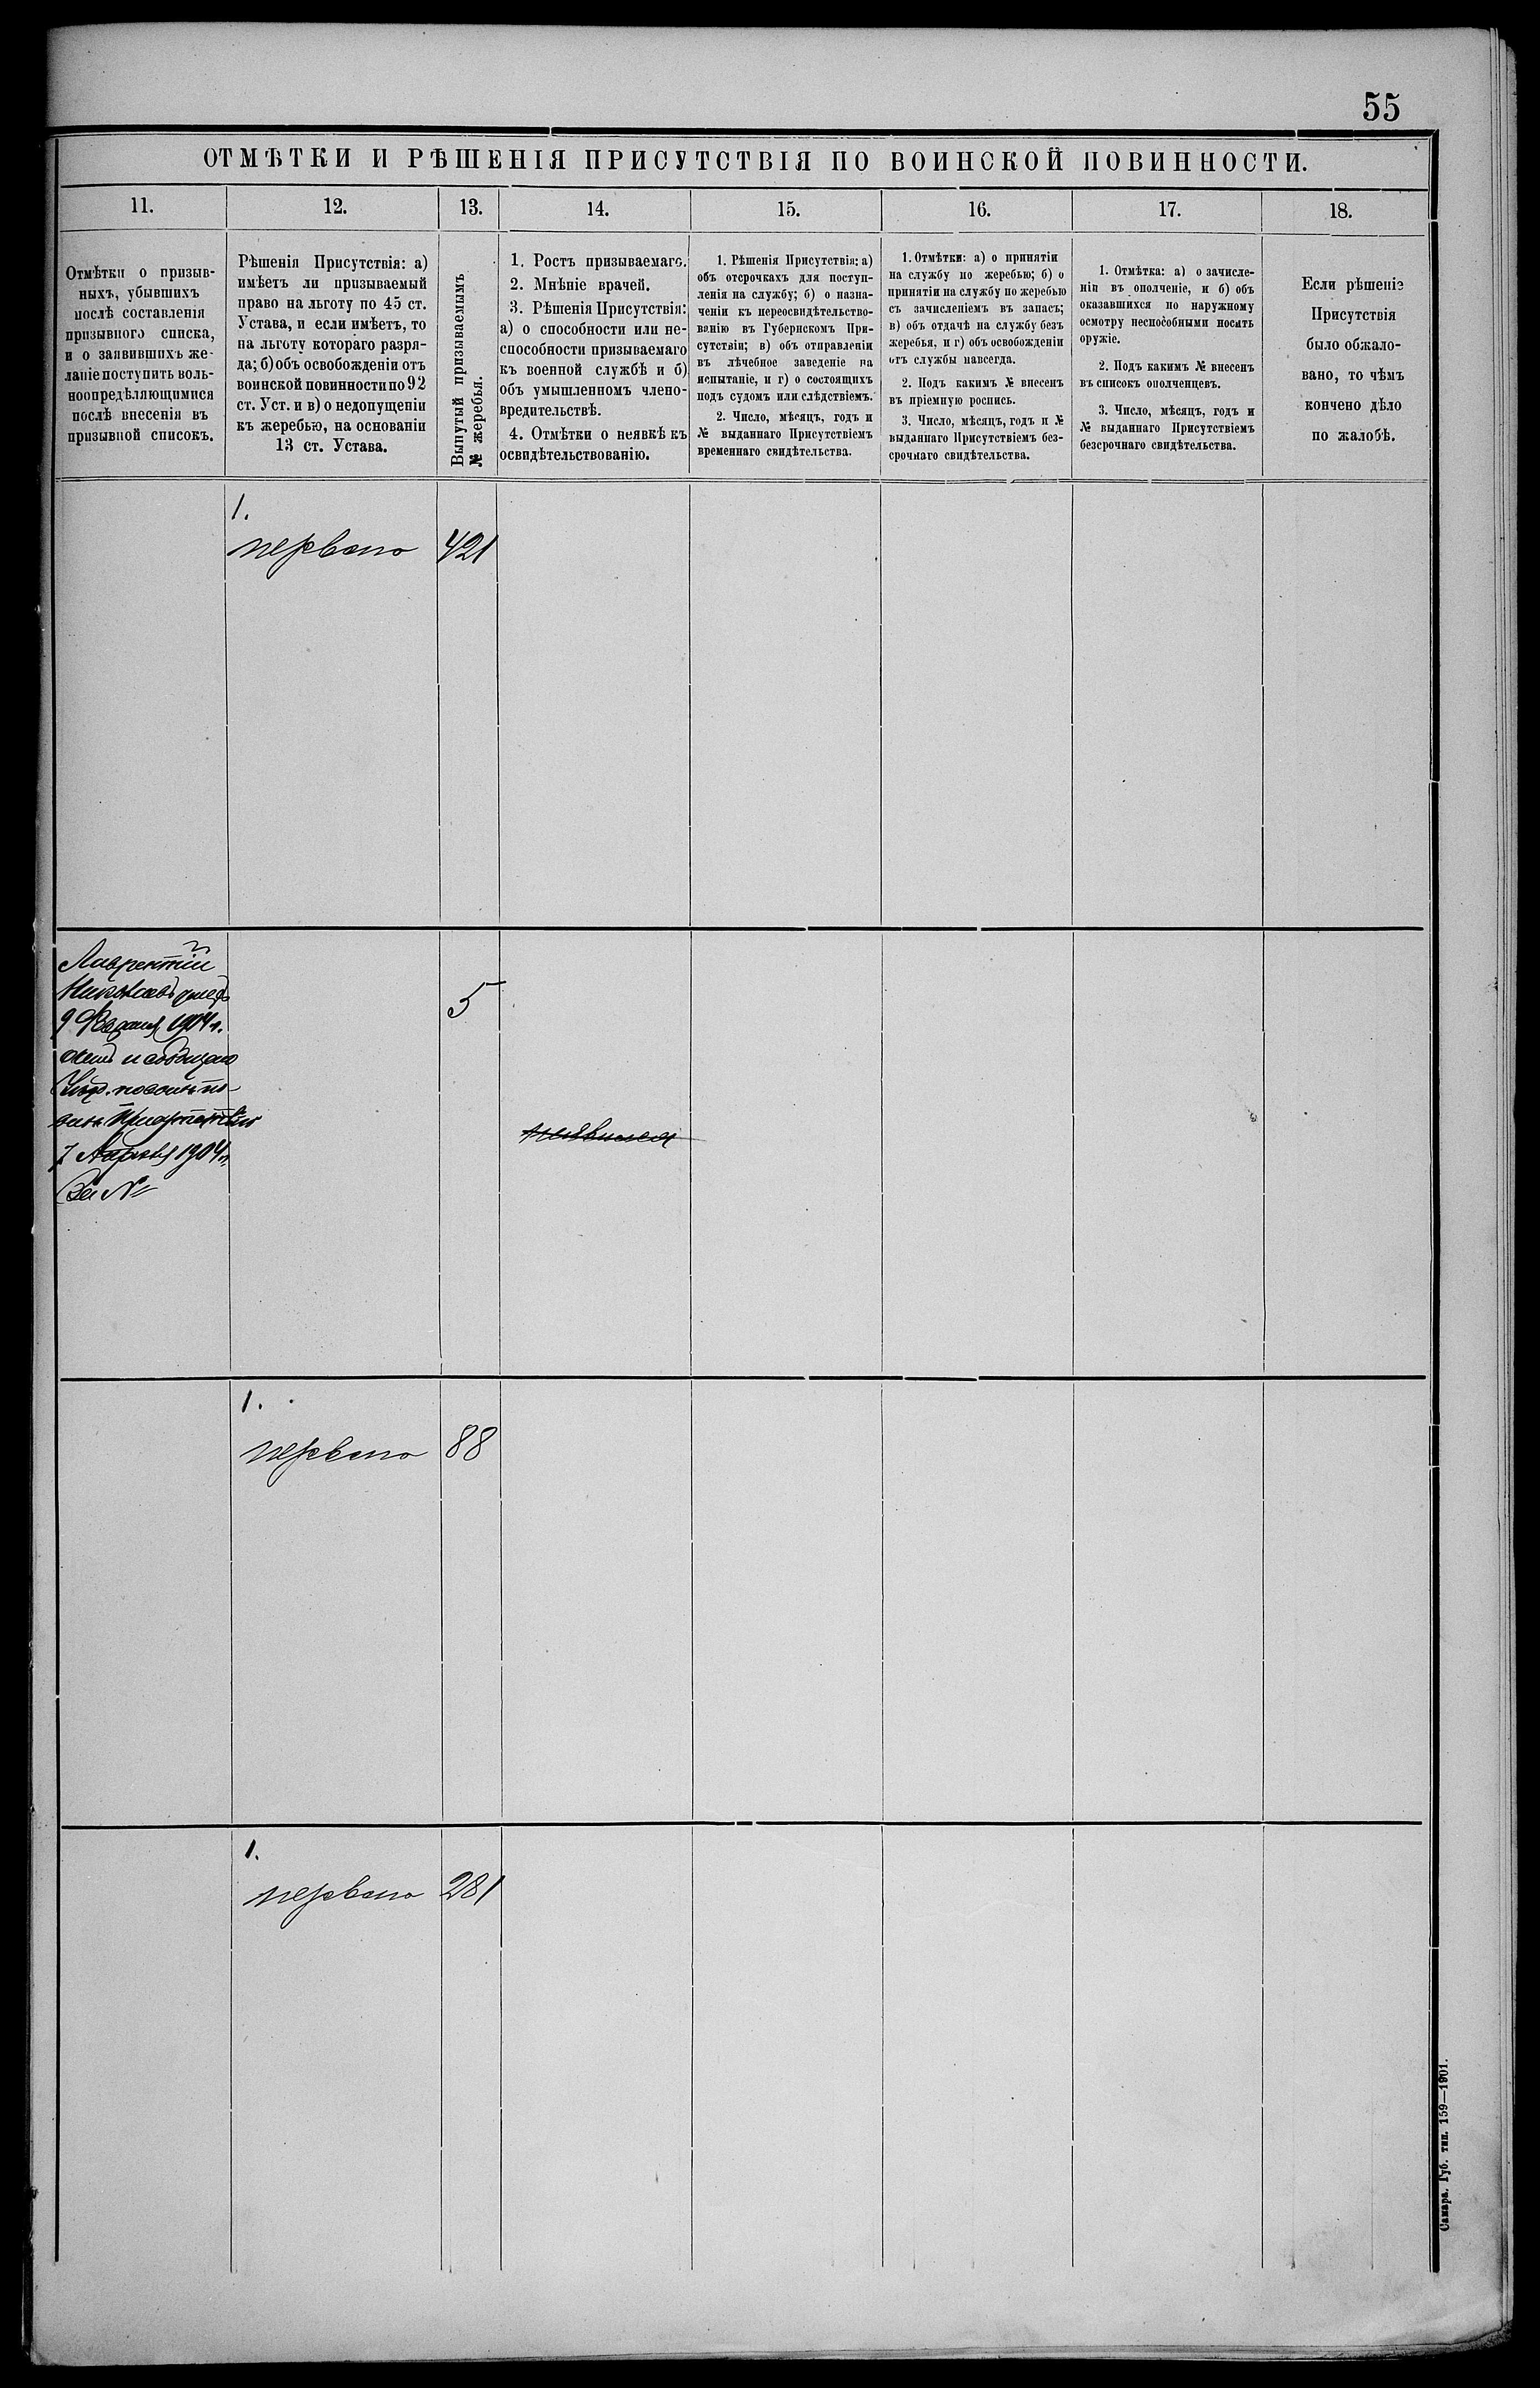 55
ОТМѢТКИ И РѢШЕНІЯ ПРИСУТСТВІЯ ПО ВОИНСКОЙ ПОВИННОСТИ.
11.
12.
13.
14.
15.
16.
17.
18.
Отмѣтки о призыв-
ныхъ, убывшихъ
послѣ составленія
призывного списка,
и о заявившихъ же-
ланіе поступить воль-
ноопредѣляющимися
послѣ внесенія въ
призывной списокъ.
Рѣшенія Присутствія: а)
имѣетъ ли призываемый
право на льготу по 45 ст.
Устава, и если имѣетъ, то
на льготу котораго разря-
да; б) объ освобожденіи отъ
воинской повинности по 92
ст. Уст. и в) о недопущеніи
къ жеребью, на основаніи
13 ст. Устава.
Вынутый призываемымъ
№ жеребья.
1. Ростъ призываемаго.
2. Мнѣніе врачей.
3. Рѣшенія Присутствія:
а) о способности или не-
способности призываемаго
къ военной службѣ и б)
объ умышленномъ члено-
вредительствѣ.
4. Отмѣтки о неявкѣ къ
освидѣтельствованію.
1. Рѣшенія Присутствія: а)
объ отсрочкахъ для поступ-
ленія на службу; б) о назна-
ченіи къ переосвидѣтельство-
ванію въ Губернскомъ При-
сутствіи; в) объ отправленіи
въ лѣчебное заведеніе на
испытаніе, и г) о состоящихъ
подъ судомъ или слѣдствіемъ.
2. Число, мѣсяцъ, годъ и
№ выданнаго Присутствіемъ
временнаго свидѣтельства.
1. Отмѣтки: а) о принятіи
на службу по жеребью; б) о
принятіи на службу по жеребью
съ зачисленіемъ въ запасъ;
в) объ отдачѣ на службу безъ
жеребья, и г) объ освобожденіи
отъ службы навсегда.
2. Подъ какимъ № внесенъ
въ пріемную роспись.
3. Число, мѣсяцъ, годъ и №
выданнаго Присутствіемъ без-
срочнаго свидѣтельства.
1. Отмѣтка: а) о зачисле-
ніи въ ополченіе, и б) объ
оказавшихся по наружному
осмотру неспособными носить
оружіе.
2. Подъ какимъ № внесенъ
въ списокъ ополченцевъ.
3. Число, мѣсяцъ, годъ и
№ выданнаго Присутствіемъ
безсрочнаго свидѣтельства.
Если рѣшеніе
Присутствія
было обжало-
вано, то чѣмъ
кончено дѣло
по жалобѣ.
1.
первано 421
Лаврентій
9 1904 г.
5
Присутствію
7 1904 г.
За №
неявился
1.
первано 88
1.
первано 281
Самара. Губ. тип. 159—1901.